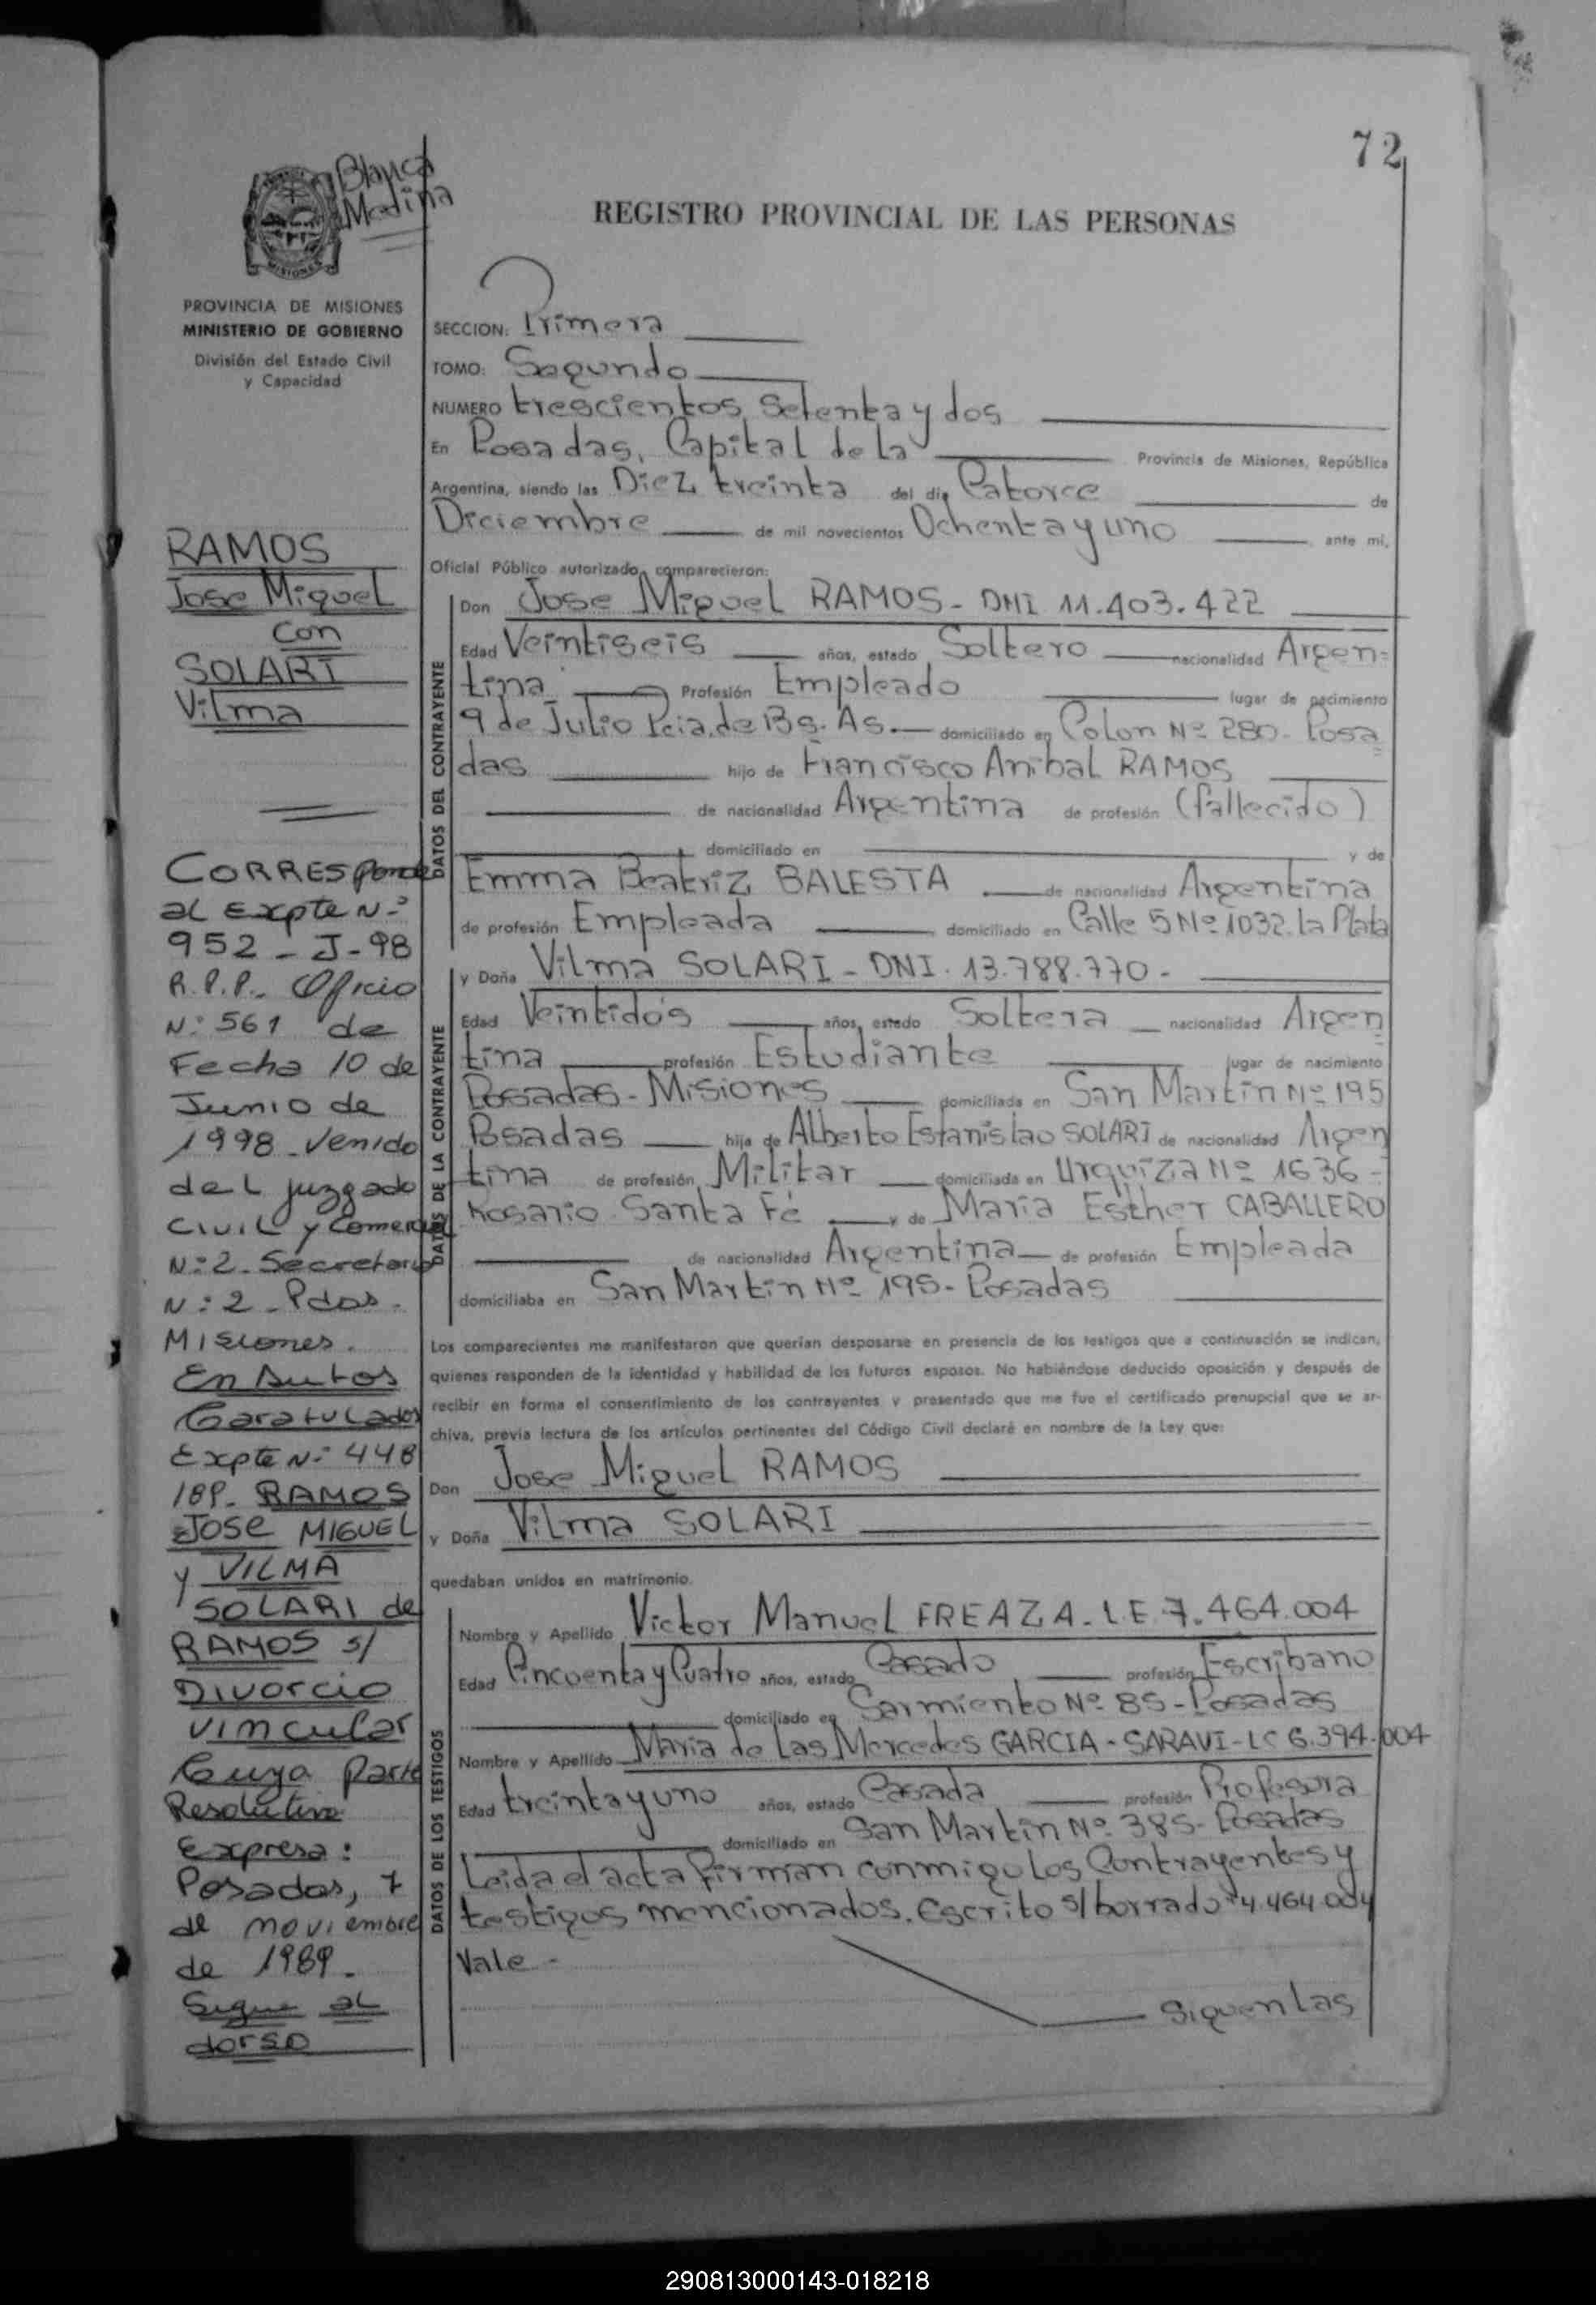 72
Blanca
Medina
REGISTRO PROVINCIAL DE LAS PERSONAS
MISIONES
PROVINCIA DE MISIONES
MINISTERIO DE GOBIERNO
División del Estado Civil
y Capacidad
RAMOS
Jose Miguel
con
SOLARI
Vilma
CORRESponde
al Expte N:º
952 - J - 98
R.P.P. Oficio
N: 561 de
Fecha 10 de
Junio de
1998 - venido
del juzgado
Civil y Comercial
N: 2. Secretaria
N: 2 - Pdas.
Misiones.
En Autos
Caratulados
Expte N: 448
189. RAMOS
Jose MIGUEL
y VILMA
SOLARI de
RAMOS s/
Divorcio
vincular
Cuya Parte
Resolutiva
Expresa:
Posadas, 7
de noviembre
de 1989.
Sigue al
dorso
SECCION: Primera
TOMO: Segundo
NUMERO trescientos Setenta y dos
En Posadas, Capital de la Provincia de Misiones, República
Argentina, siendo las Diez treinta del día Catorce de
Diciembre de mil novecientos Ochenta y uno ante mi,
Oficial Público autorizado, comparecieron:
DATOS DEL CONTRAYENTE
Don Jose Miguel RAMOS - DNI 11.403.422
Edad Veintiseis años, estado Soltero nacionalidad Argen=
tina Profesión Empleado lugar de nacimiento
9 de Julio Pcia. de Bs. As. domiciliado en Colon Nº 280 - Posa=
das hijo de Francisco Anibal RAMOS
de nacionalidad Argentina de profesión (fallecido)
domiciliado en y de
Emma Beatriz BALESTA de nacionalidad Argentina
de profesión Empleada domiciliado en Calle 5 Nº 1032. La Plata
DATOS DE LA CONTRAYENTE
y Doña Vilma SOLARI - DNI. 13.788.770 -
Edad Veintidos años, estado Soltera nacionalidad Argen=
tina profesión Estudiante lugar de nacimiento
Posadas - Misiones domiciliada en San Martín Nº 195
Posadas hija de Alberto Estanislao SOLARI de nacionalidad Argen
tina de profesión Militar domiciliada en Urquiza Nº 1636 -
Rosario Santa Fé y de María Esther CABALLERO
de nacionalidad Argentina de profesión Empleada
domiciliaba en San Martín Nº 195 - Posadas
Los comparecientes me manifestaron que querían desposarse en presencia de los testigos que a continuación se indican,
quienes responden de la identidad y habilidad de los futuros esposos. No habiéndose deducido oposición y después de
recibir en forma el consentimiento de los contrayentes y presentado que me fue el certificado prenupcial que se ar-
chiva, previa lectura de los artículos pertinentes del Código Civil declaré en nombre de la Ley que:
Don Jose Miguel RAMOS
y Doña Vilma SOLARI
quedaban unidos en matrimonio.
DATOS DE LOS TESTIGOS
Nombre y Apellido Victor Manuel FREAZA - L.E. 7.464.004
Edad Cincuenta y Cuatro años, estado Casado profesión Escribano
domiciliado en Sarmiento Nº 85 - Posadas
Nombre y Apellido María de Las Mercedes GARCIA - SARAVI - LC 6.394.004
Edad treinta y uno años, estado Casada profesión Profesora
domiciliado en San Martín Nº 385 - Posadas
Leida el acta firman conmigo los Contrayentes y
testigos mencionados. Escrito s/borrado
Vale -
Siguen las
290813000143-018218